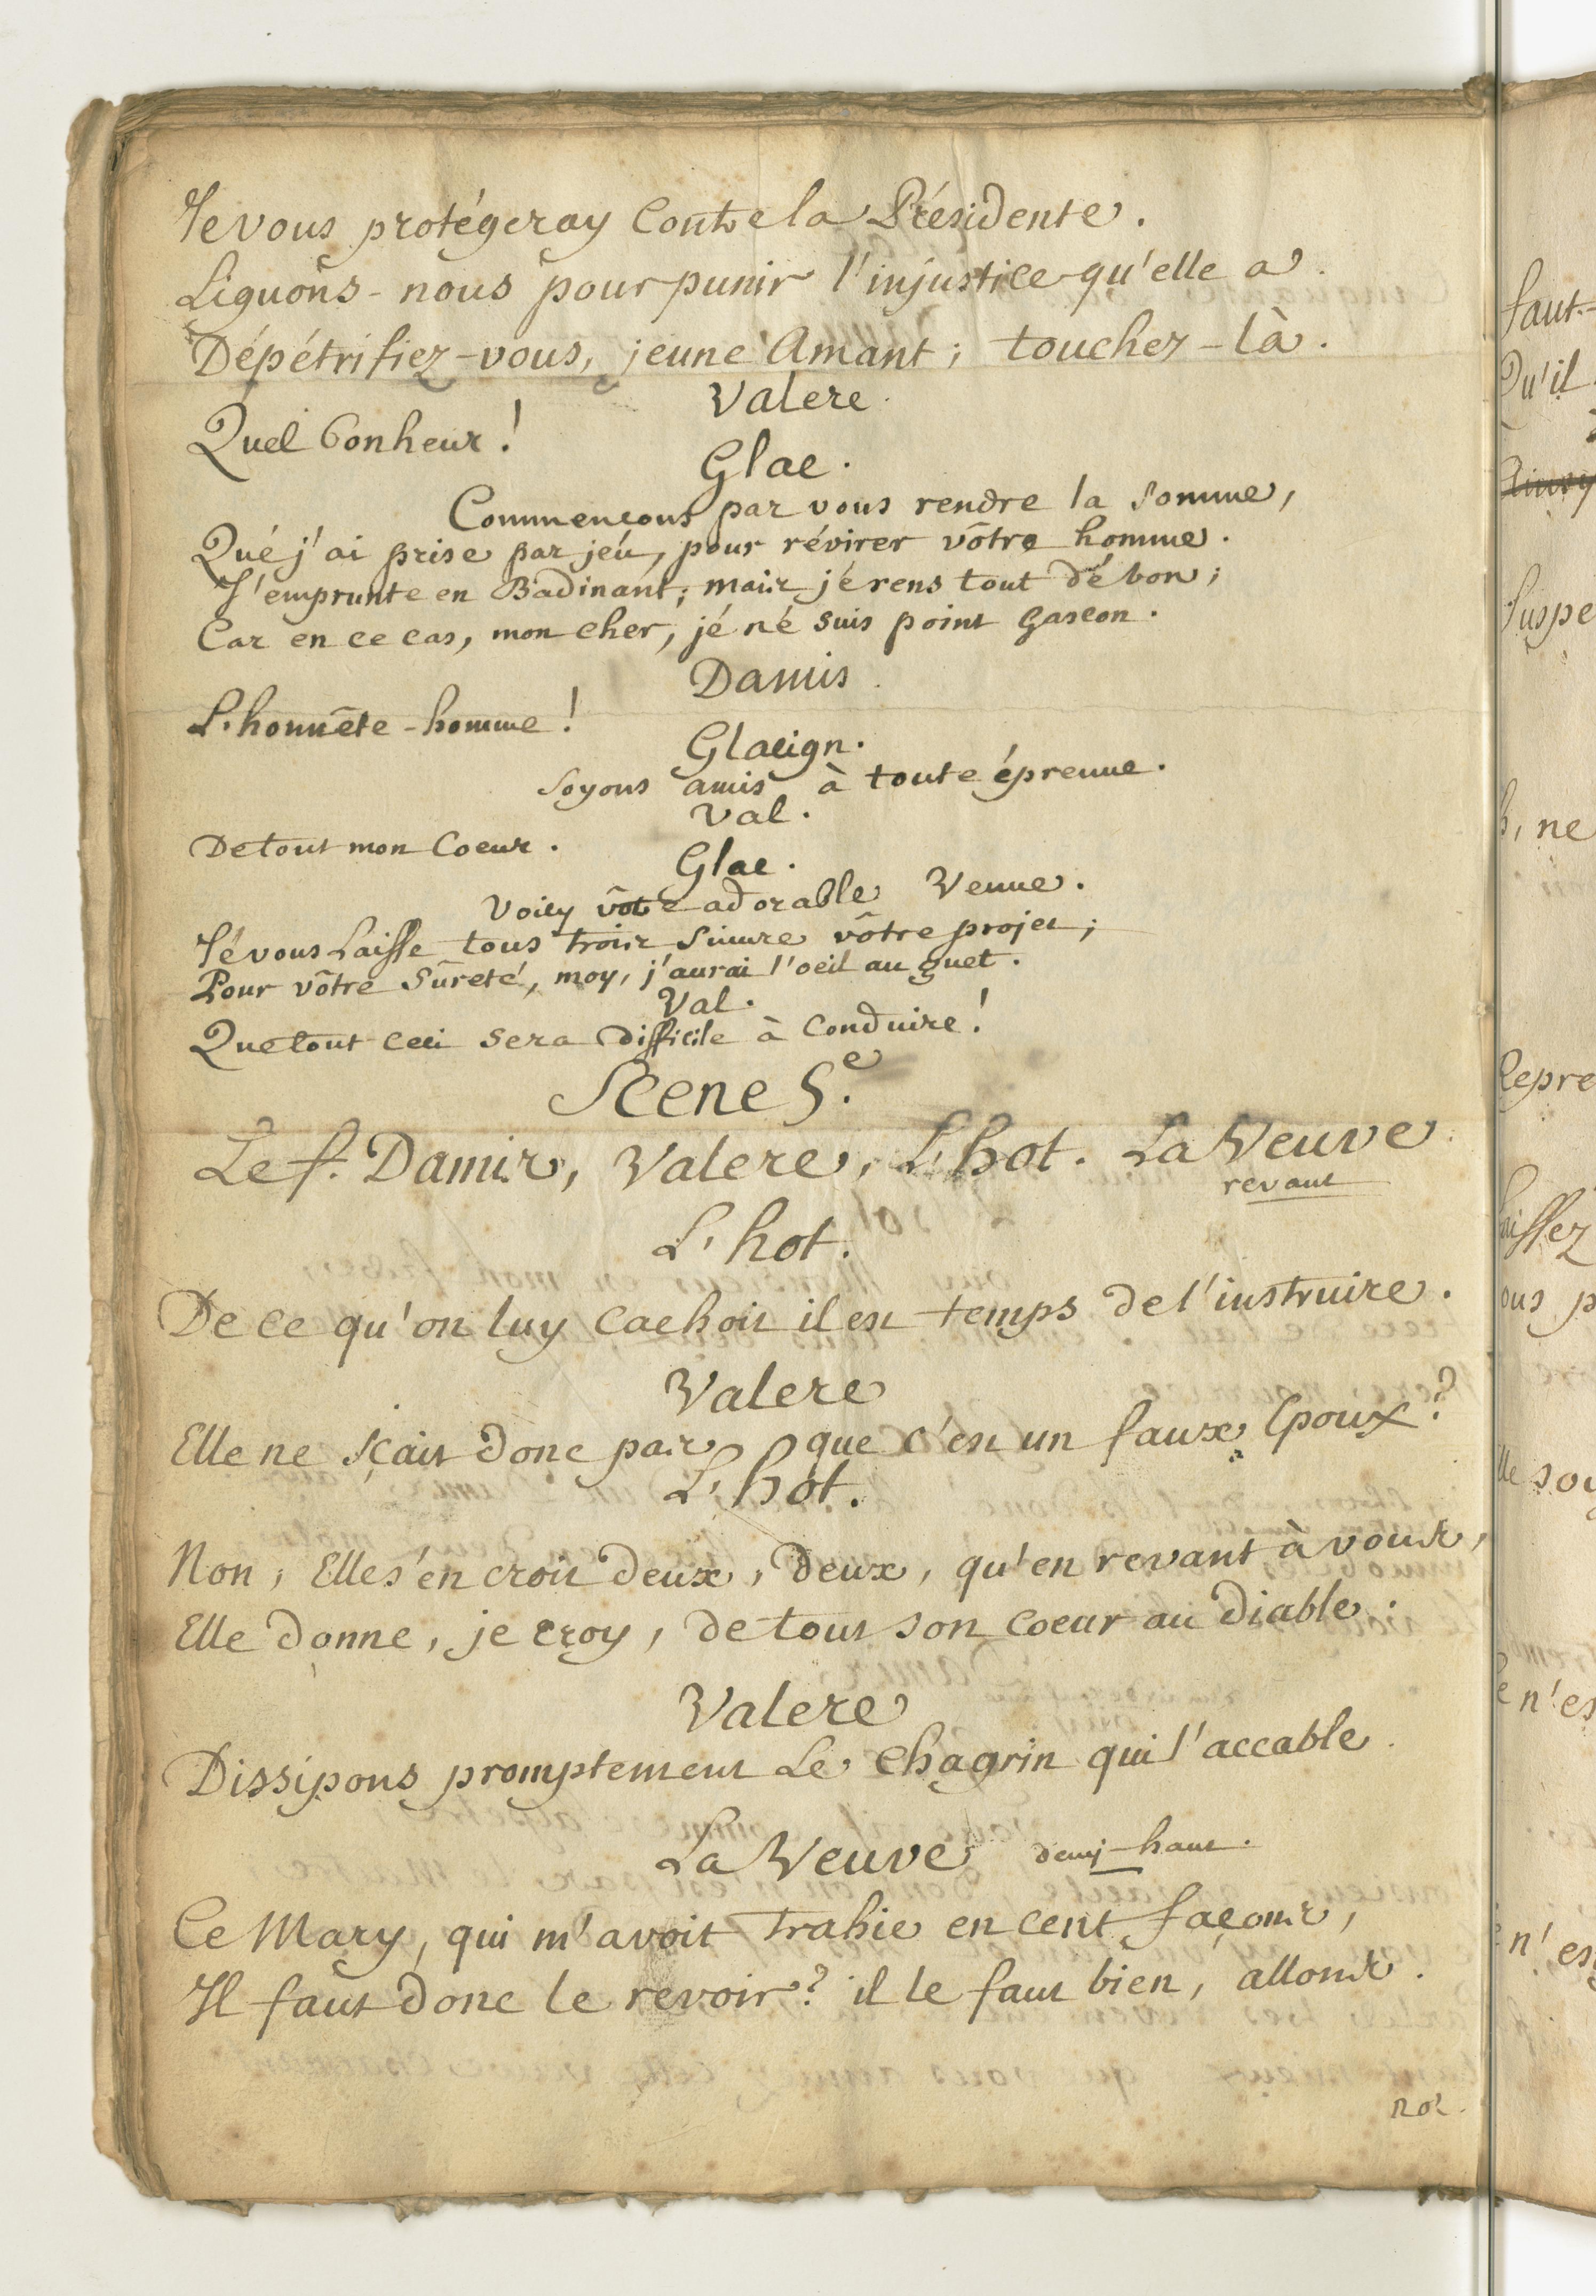 Je vous protégeray Contre la Présidente.
Liguons-nous pour punir l'injustice qu'elle a.
Dépétrifiez-vous, jeune Amant; touchez-là.
Valere.
Quel bonheur!
Glac.
Commencons par vous rendre la somme,
Qué j'ai prise par jeu, pour révirer vôtre homme.
J'emprunte en Badinant; mais jé rens tout dé bon;
Car en ce cas, mon cher, jé né suis point gascon.
Damis.
L'honnête-homme!
Glacign.
Soyons amis à toute épreuue.
Val.
De tout mon Coeur.
Glac.
Voicy vôtre adorable Veuue.
Jé vous Laisse tous trois suivre vôtre projet;
Pour vôtre Sûreté, moy, j'aurai l'oeil au guet.
Val.
Que tout ceci sera difficile à Conduire!
Scene 5.e
Le f. Damis, Valere, L'hot. La Veuve
revant
L'hot.
De ce qu'on luy cachoit il est temps de l'instruire.
Valere
Elle ne sçait donc pas que c'est un faux Epoux?
L'hot.
Non; Elle s'en croit deux, deux, qu'en revant à vous,
Elle donne, je croy, de tout son coeur au Diable.
Valere
Dissipons promptement Le Chagrin qui l'accable.
La Veuve demj-haut.
Ce Mary, qui m'avoit trahie en cent façons,
Il faut donc le revoir? il le faut bien, allons.
faut-
Qu'il
Suspe
h, ne
Repre
aissez
ous p
lle soy
e n'es
n'es